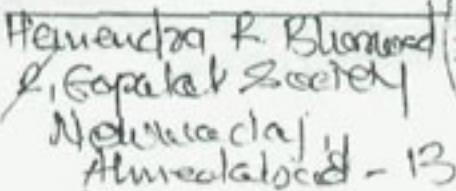 Hemendra R. Bhavsar
2, Gopalak Society
Ahmedabad - 13